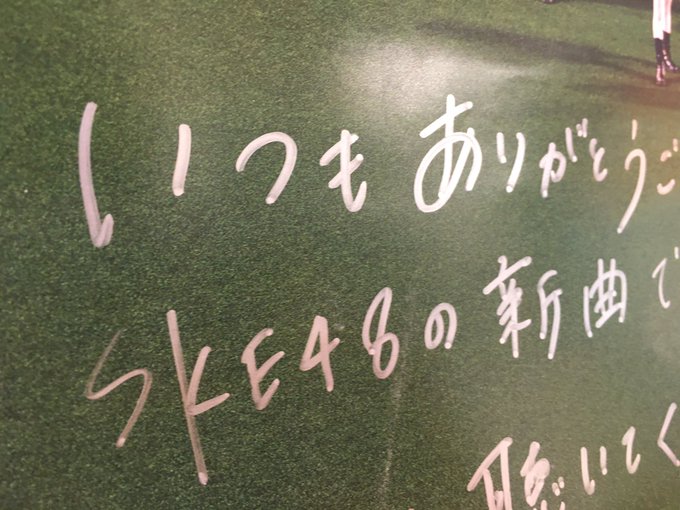 いつもありがとうご
SKE48の新曲で
聴いてく